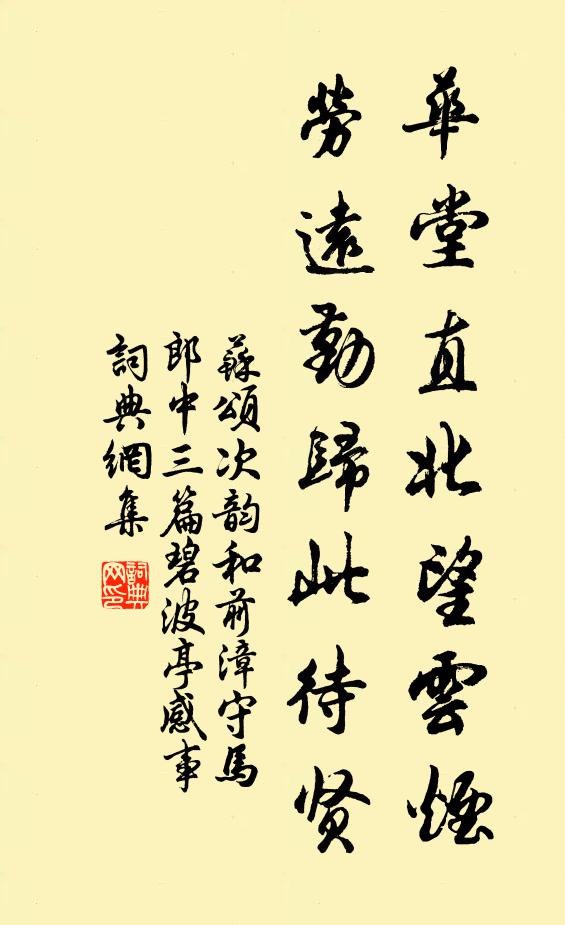 華堂直北望雲煙
勞遠勤歸此待贤
蘇頌次韵和前漳守馬
郎中三篇碧波亭感事
詞典網集
詞典网印